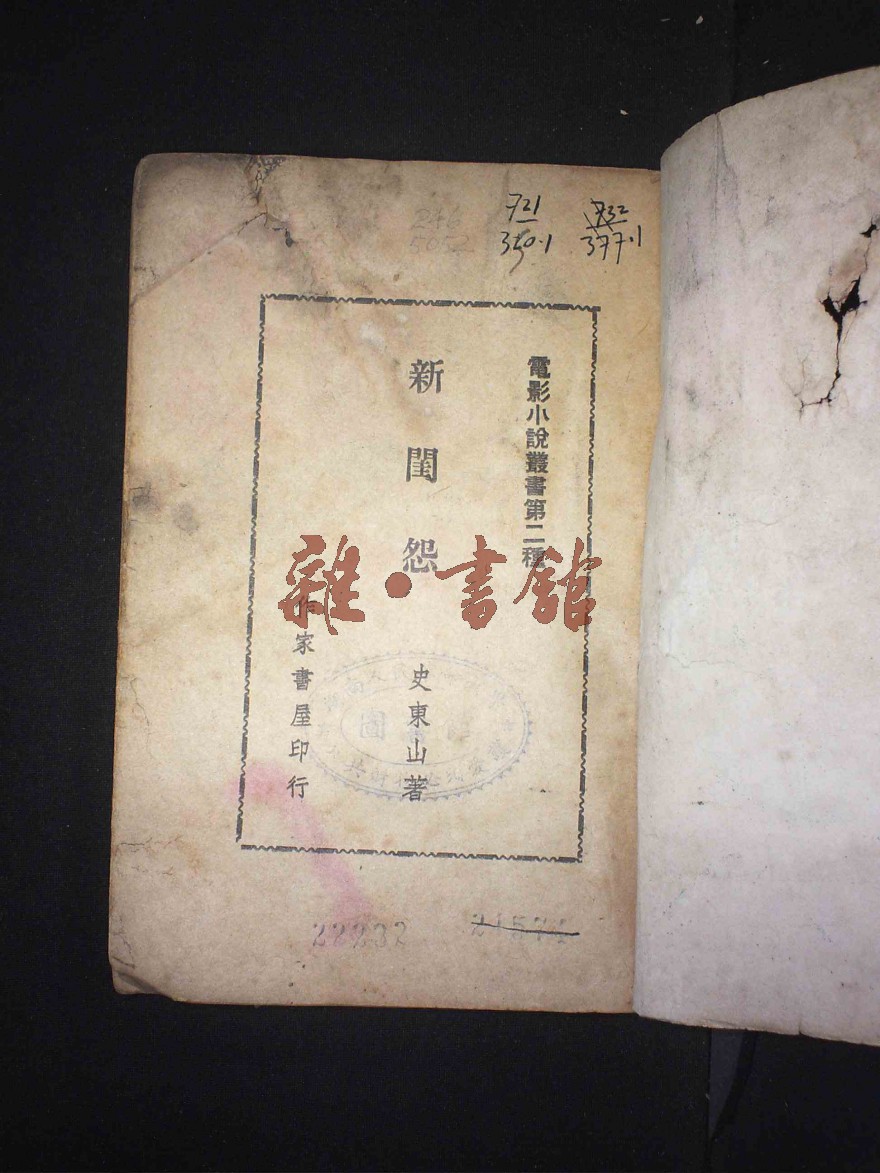 721
350·1
732
377·1
電影小說叢書第二種
新閨怨
史東山著
作家書屋印行
雜·書館
22232